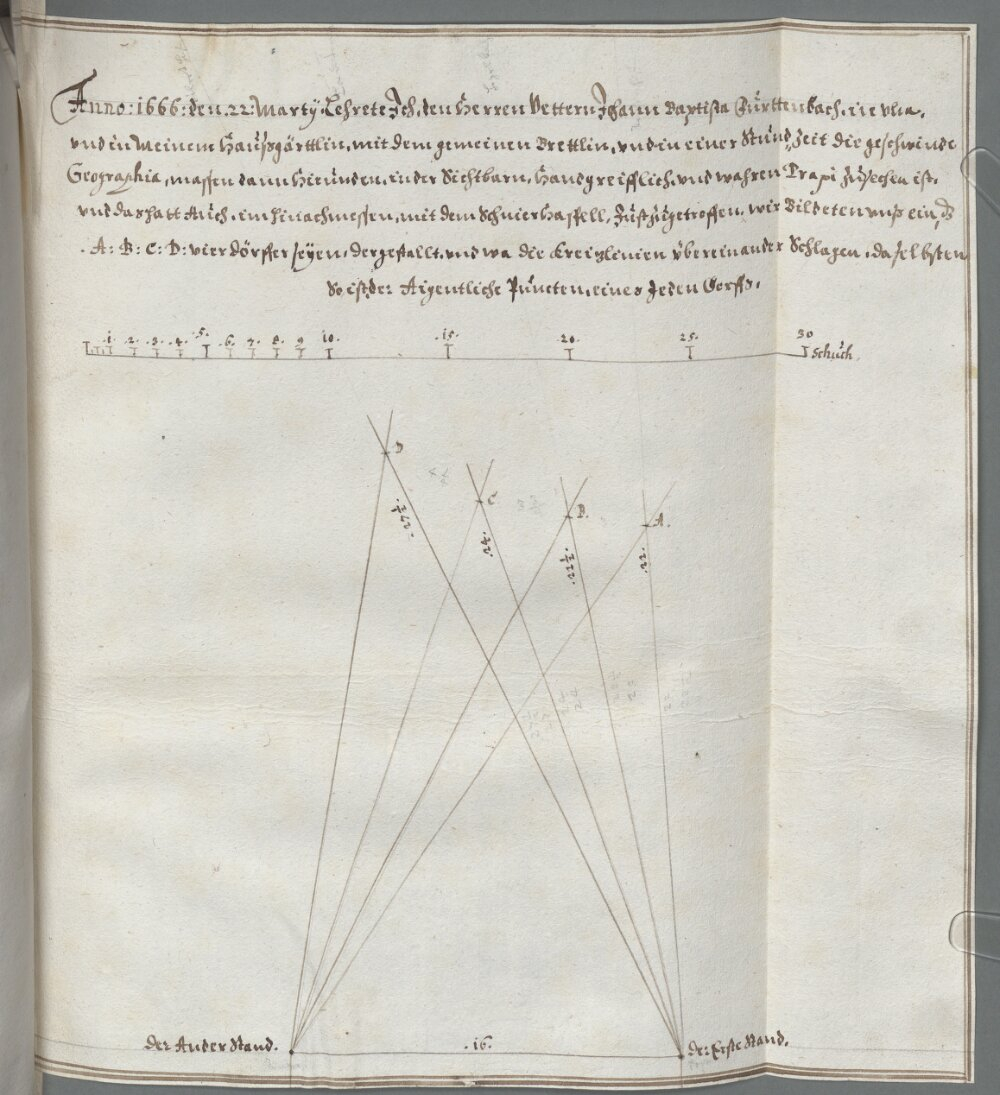 Anno: 1666: den. 22: Marty. Lehrete Ich, den Herren Vettern Johann Baptista Fürttenbach, in Ulm,
vnd in Meinem Haüßgärttlin, mit dem gemeinen Brettlin, vnd in einer Stünd, Zeit die geschwinde
Geographia, massen dann hierunden, in der Sichtbarn, Handgreifflich, vnd wahren Prapi Züsechen ist,
vnd das hatt Aüch, im hinachmessen, mit dem Schnierhaspell, Jüst Zügetroffen, wir Bildeten vnß ein,
A: B: C: D: vier dörffer seyen, dergestallt, vnd wa die Creizlinien übereinander Schlagen, daselbsten
So ist, der Aigentliche Püncten, eines Jeden Dorffs.
.1. .2. .3. .4. .5. .6. .7. .8. 9. 10. .15. .20. 25. 30 Schüch.
D
C
B.
A.
.27½.
.24.
.22½.
.22.
der Ander Stand.
.16.
der Erste Stand.